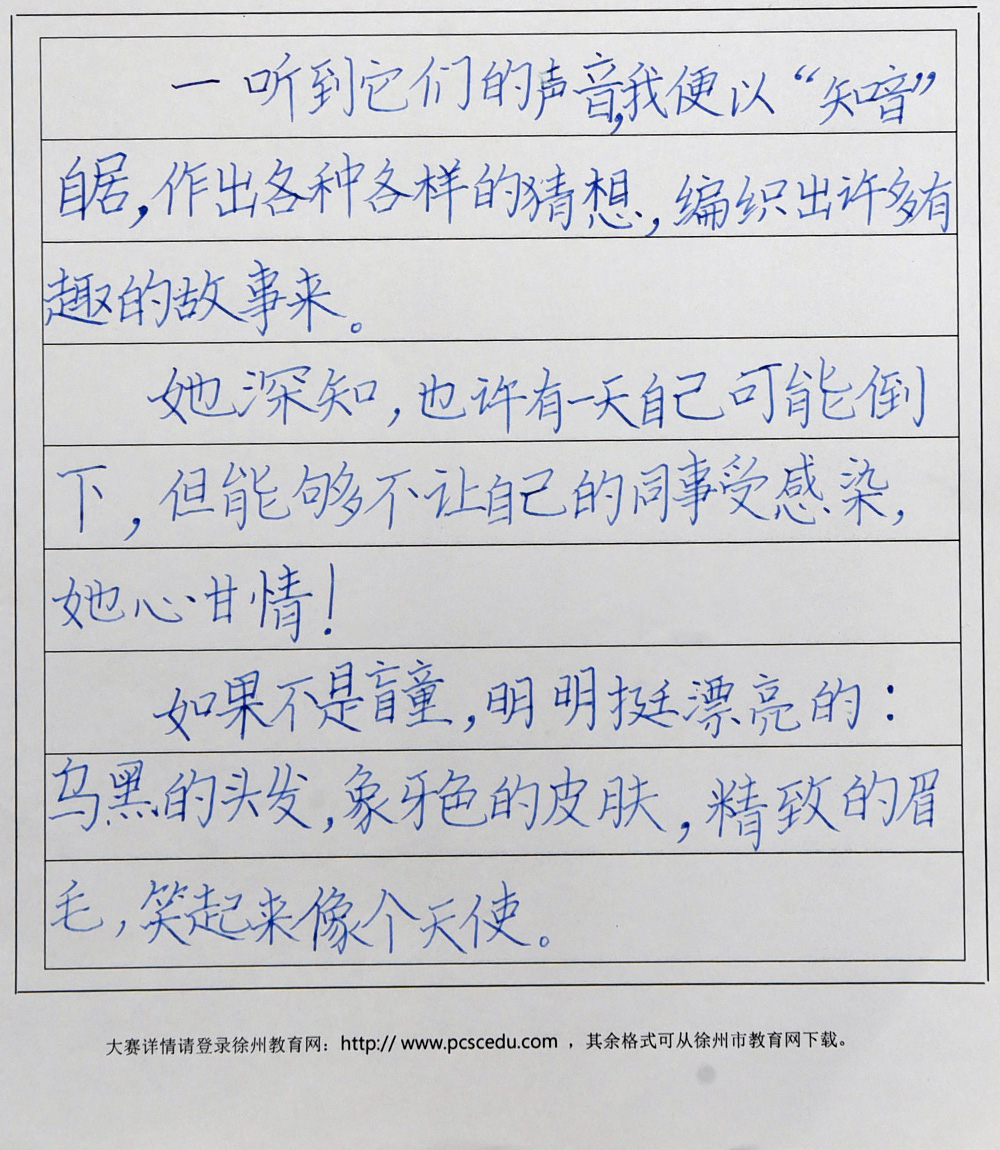 一听到它们的声音,我便以“知音”
自居,作出各种各样的猜想,编织出许多有
趣的故事来。
她深知,也许有一天自己可能倒
下,但能够不让自己的同事受感染,
她心甘情!
如果不是盲童,明明挺漂亮的:
乌黑的头发,象牙色的皮肤,精致的眉
毛,笑起来像个天使。
大赛详情请登录徐州教育网:http:// www.pcscedu.com ,其余格式可从徐州市教育网下载。